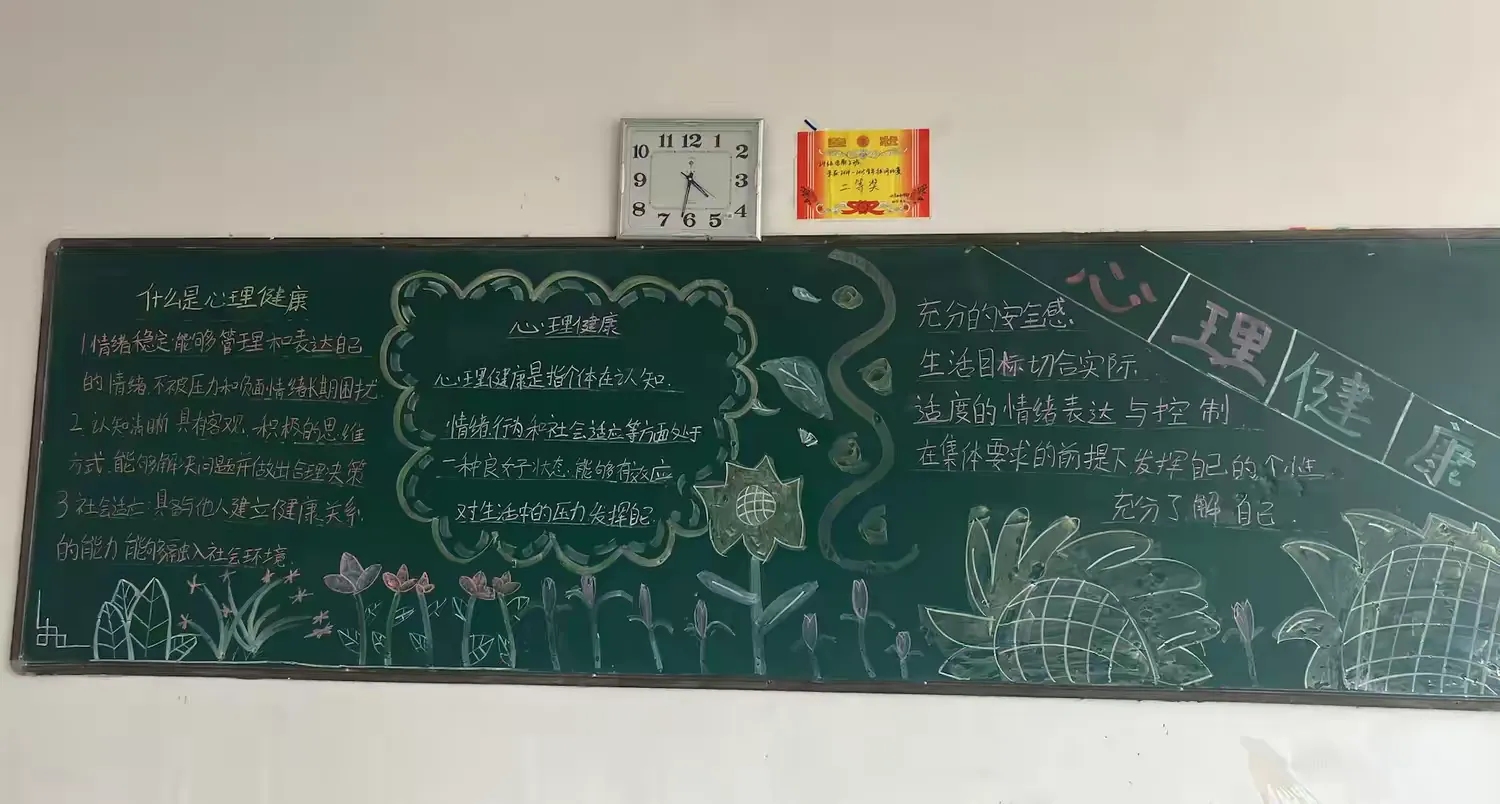 11 12 1
10 2
9 3
8 4
7 6 5
奖状
二等奖
什么是心理健康
1.情绪稳定:能够管理和表达自己
的情绪.不被压力和负面情绪长期困扰.
2.认知清晰:具有客观、积极的思维
方式.能够解决问题并做出合理决策
3.社会适应:具备与他人建立健康关系.
的能力 能够融入社会环境.
心理健康
心理健康是指个体在认知.
情绪.行为和社会适应等方面处于
一种良好状态.能够有效应
对生活中的压力发挥自己.
充分的安全感.
生活目标切合实际.
适度的情绪表达与控制
在集体要求的前提下发挥自己的个性.
充分了解自己.
心理健康